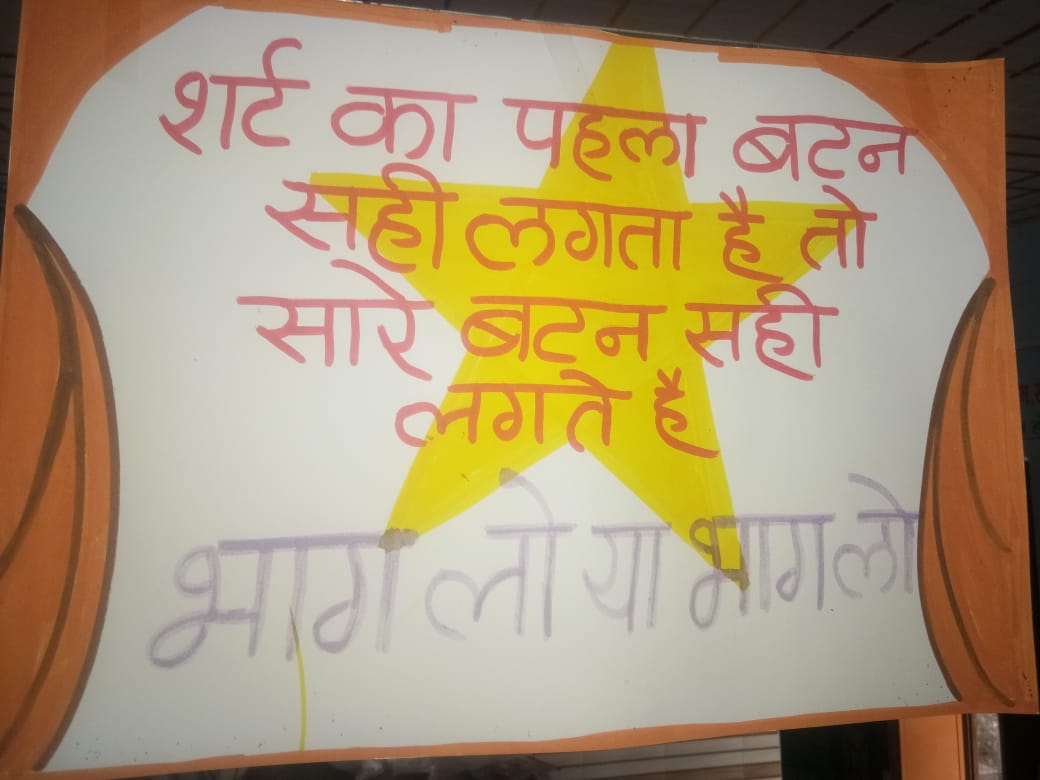 शर्ट का पहला बटन
सही लगता है तो
सारे बटन सही
लगते है
भाग लो या भाग लो